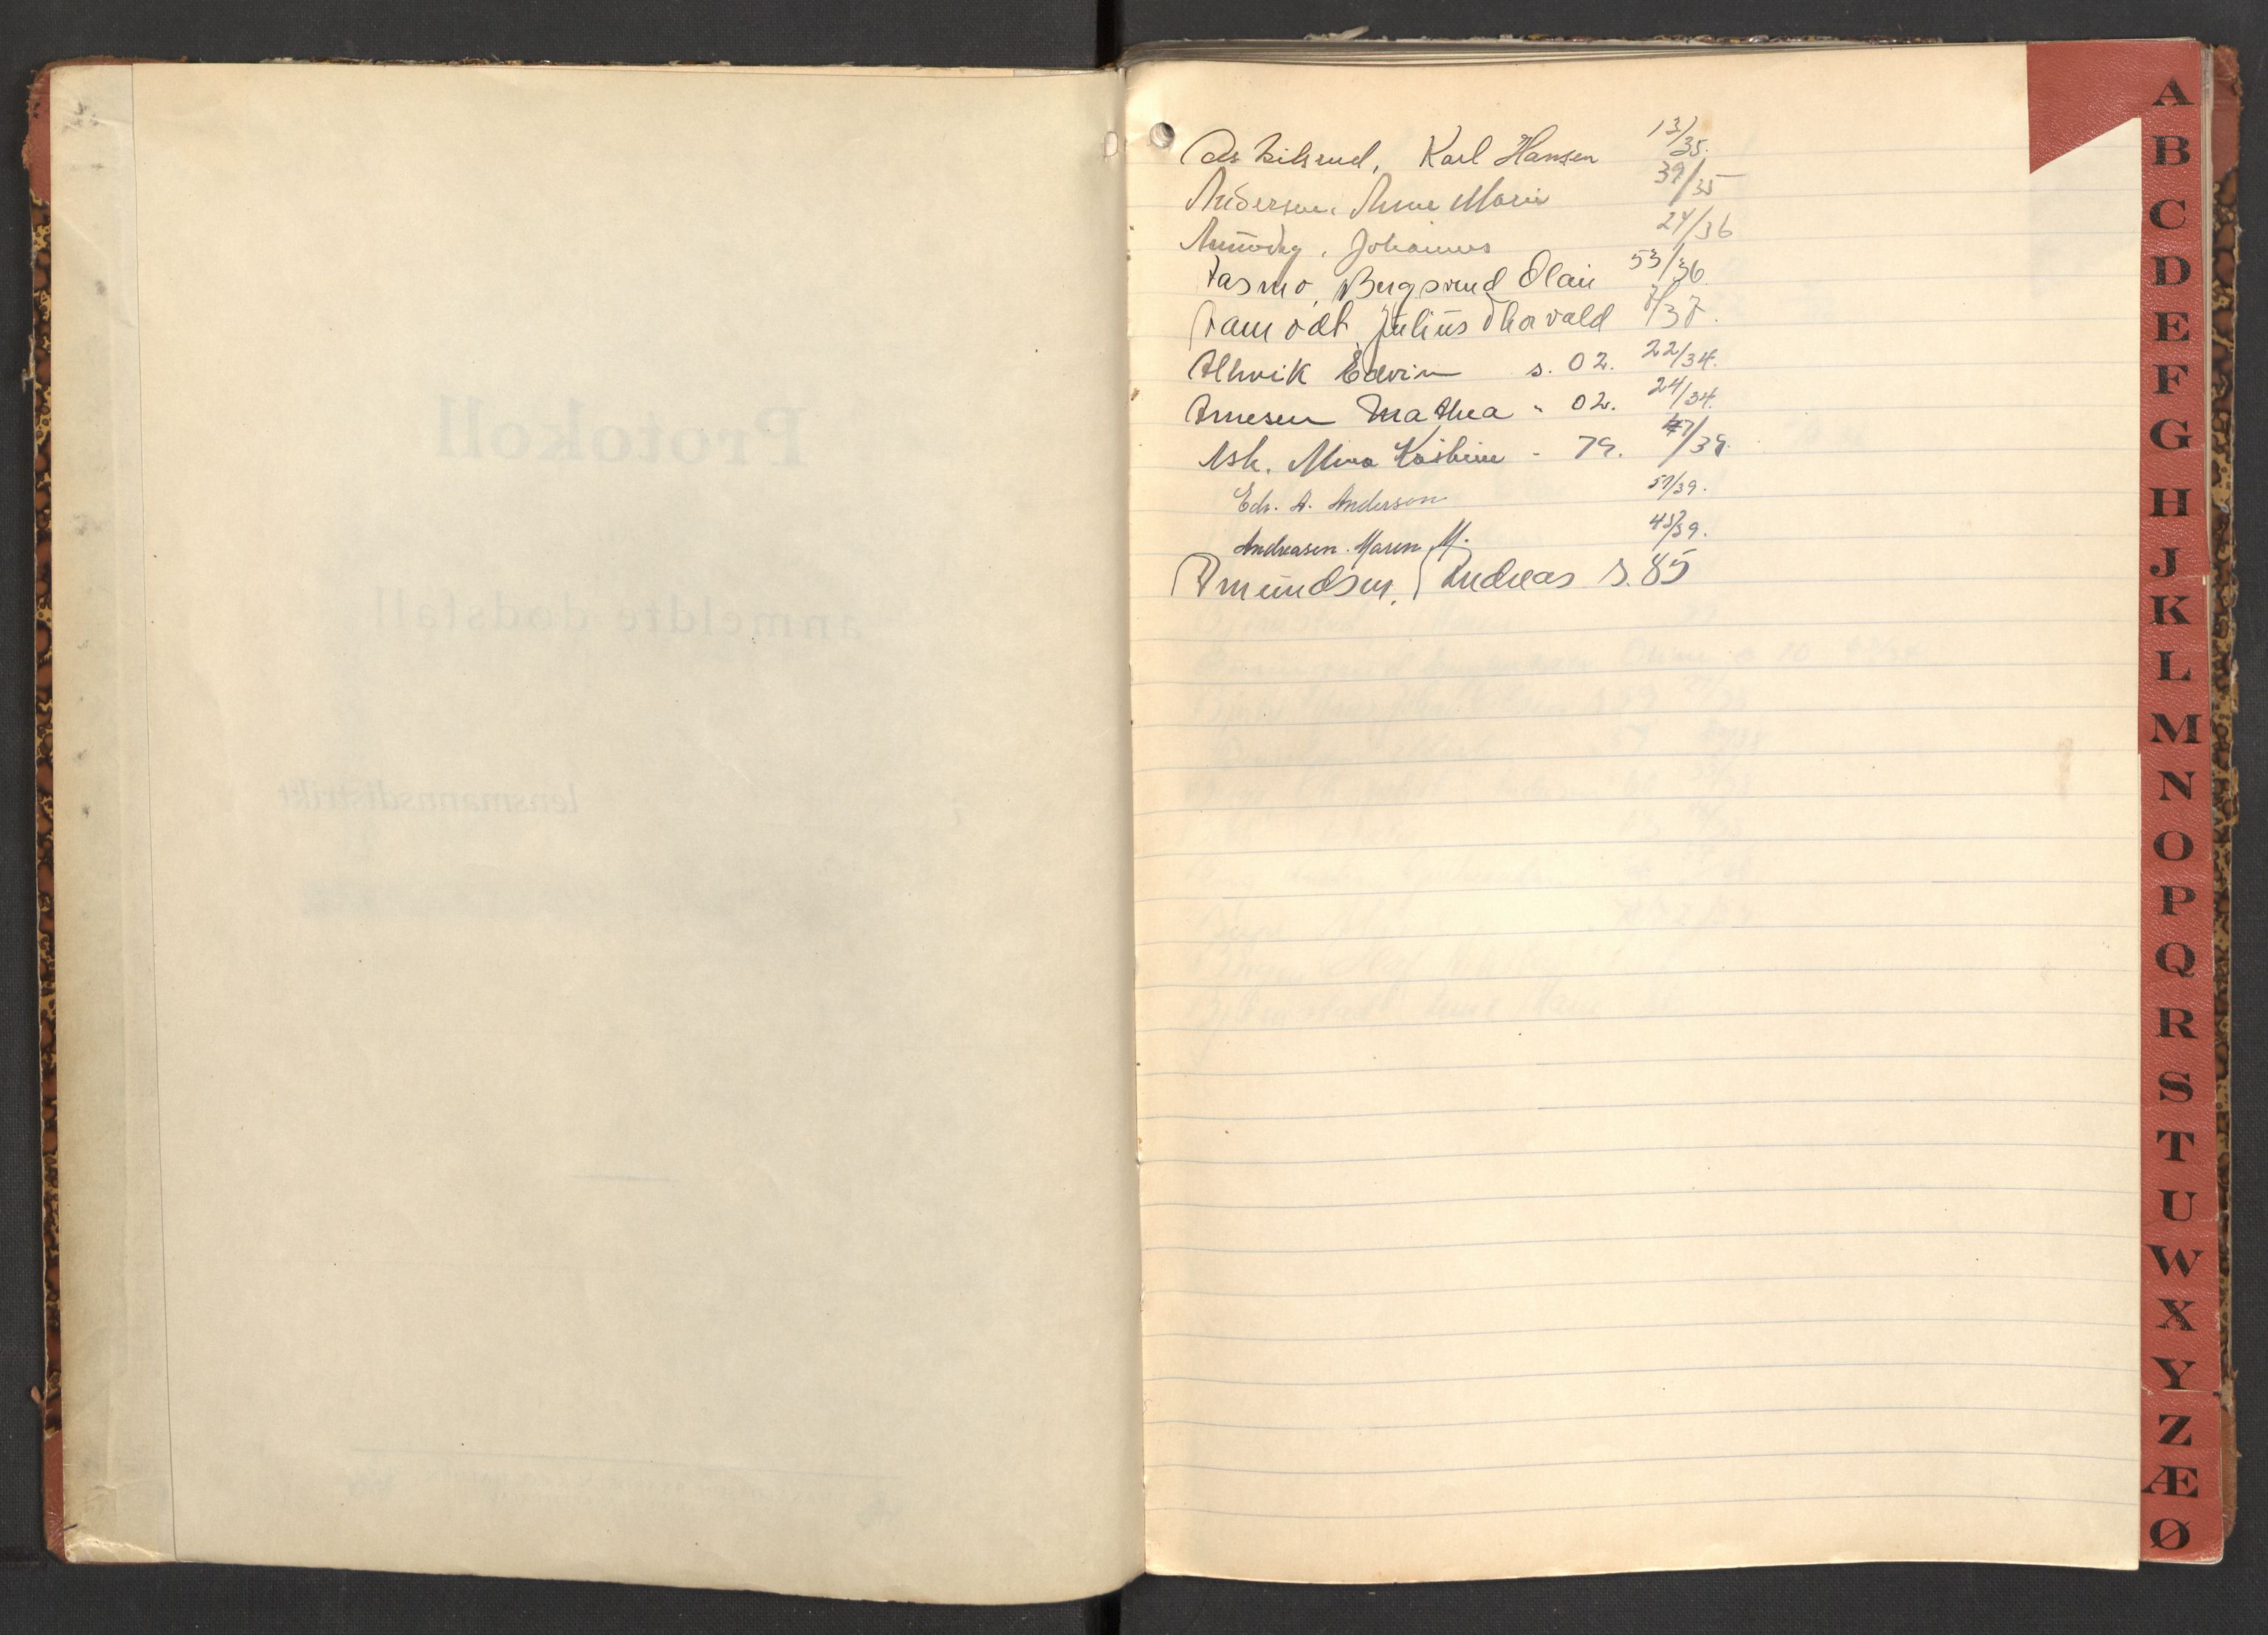 Protokoll
anmeldte dødsfall
i lensmannsdistrikt
Askilsrud, Karl Hansen 13/35.
Andersen, Anne Marie 39/35
Johannes 24/36
Aasmo, Bergsrud Olaii 53/36
Aamodt, Julius Thorvald 7/37.
Alhvik Edvin s. 02. 22/34.
Arnesen Mathea " 02. 24/34.
Ask. - 79. 47/38.
Edv. A. Anderson 51/39.
Andreasen. Maren M. 45/39.
Amundsen, Andreas S. 85
A
B
C
D
E
F
G
H
J
K
L
M
N
O
P
Q
R
S
T
U
W
X
Y
Z
Æ
Ø